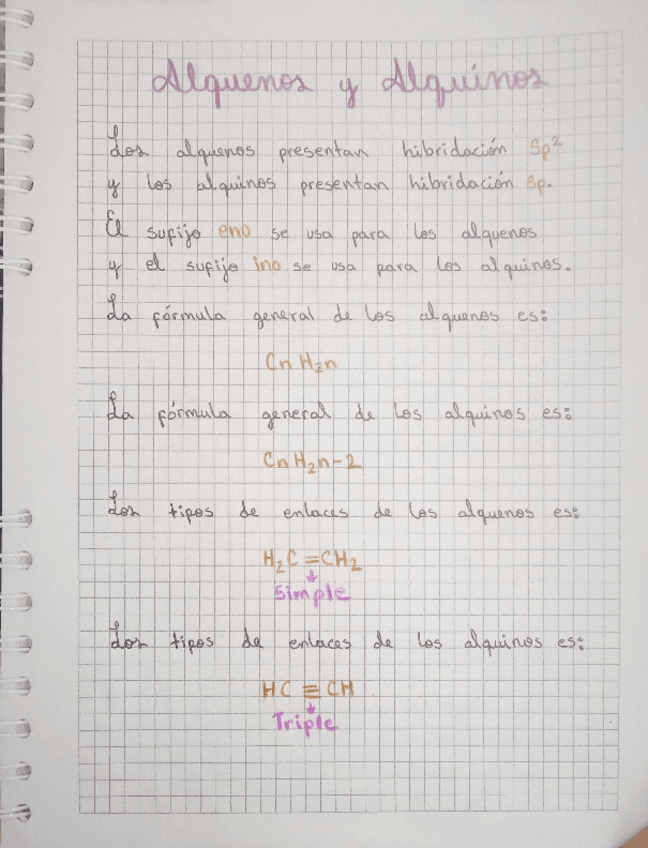 Alquenos y Alquinos
Los alquenos presentan hibridación Sp²
y los alquinos presentan hibridación Sp.
El sufijo eno se usa para los alquenos
y el sufijo ino se usa para los alquinos.
La fórmula general de los alquenos es:
CnH₂n
La fórmula general de los alquinos es:
CnH₂n-2
Los tipos de enlaces de los alquenos es:
H₂C=CH₂
↓
Simple
Los tipos de enlaces de los alquinos es:
HC≡CH
↓
Triple